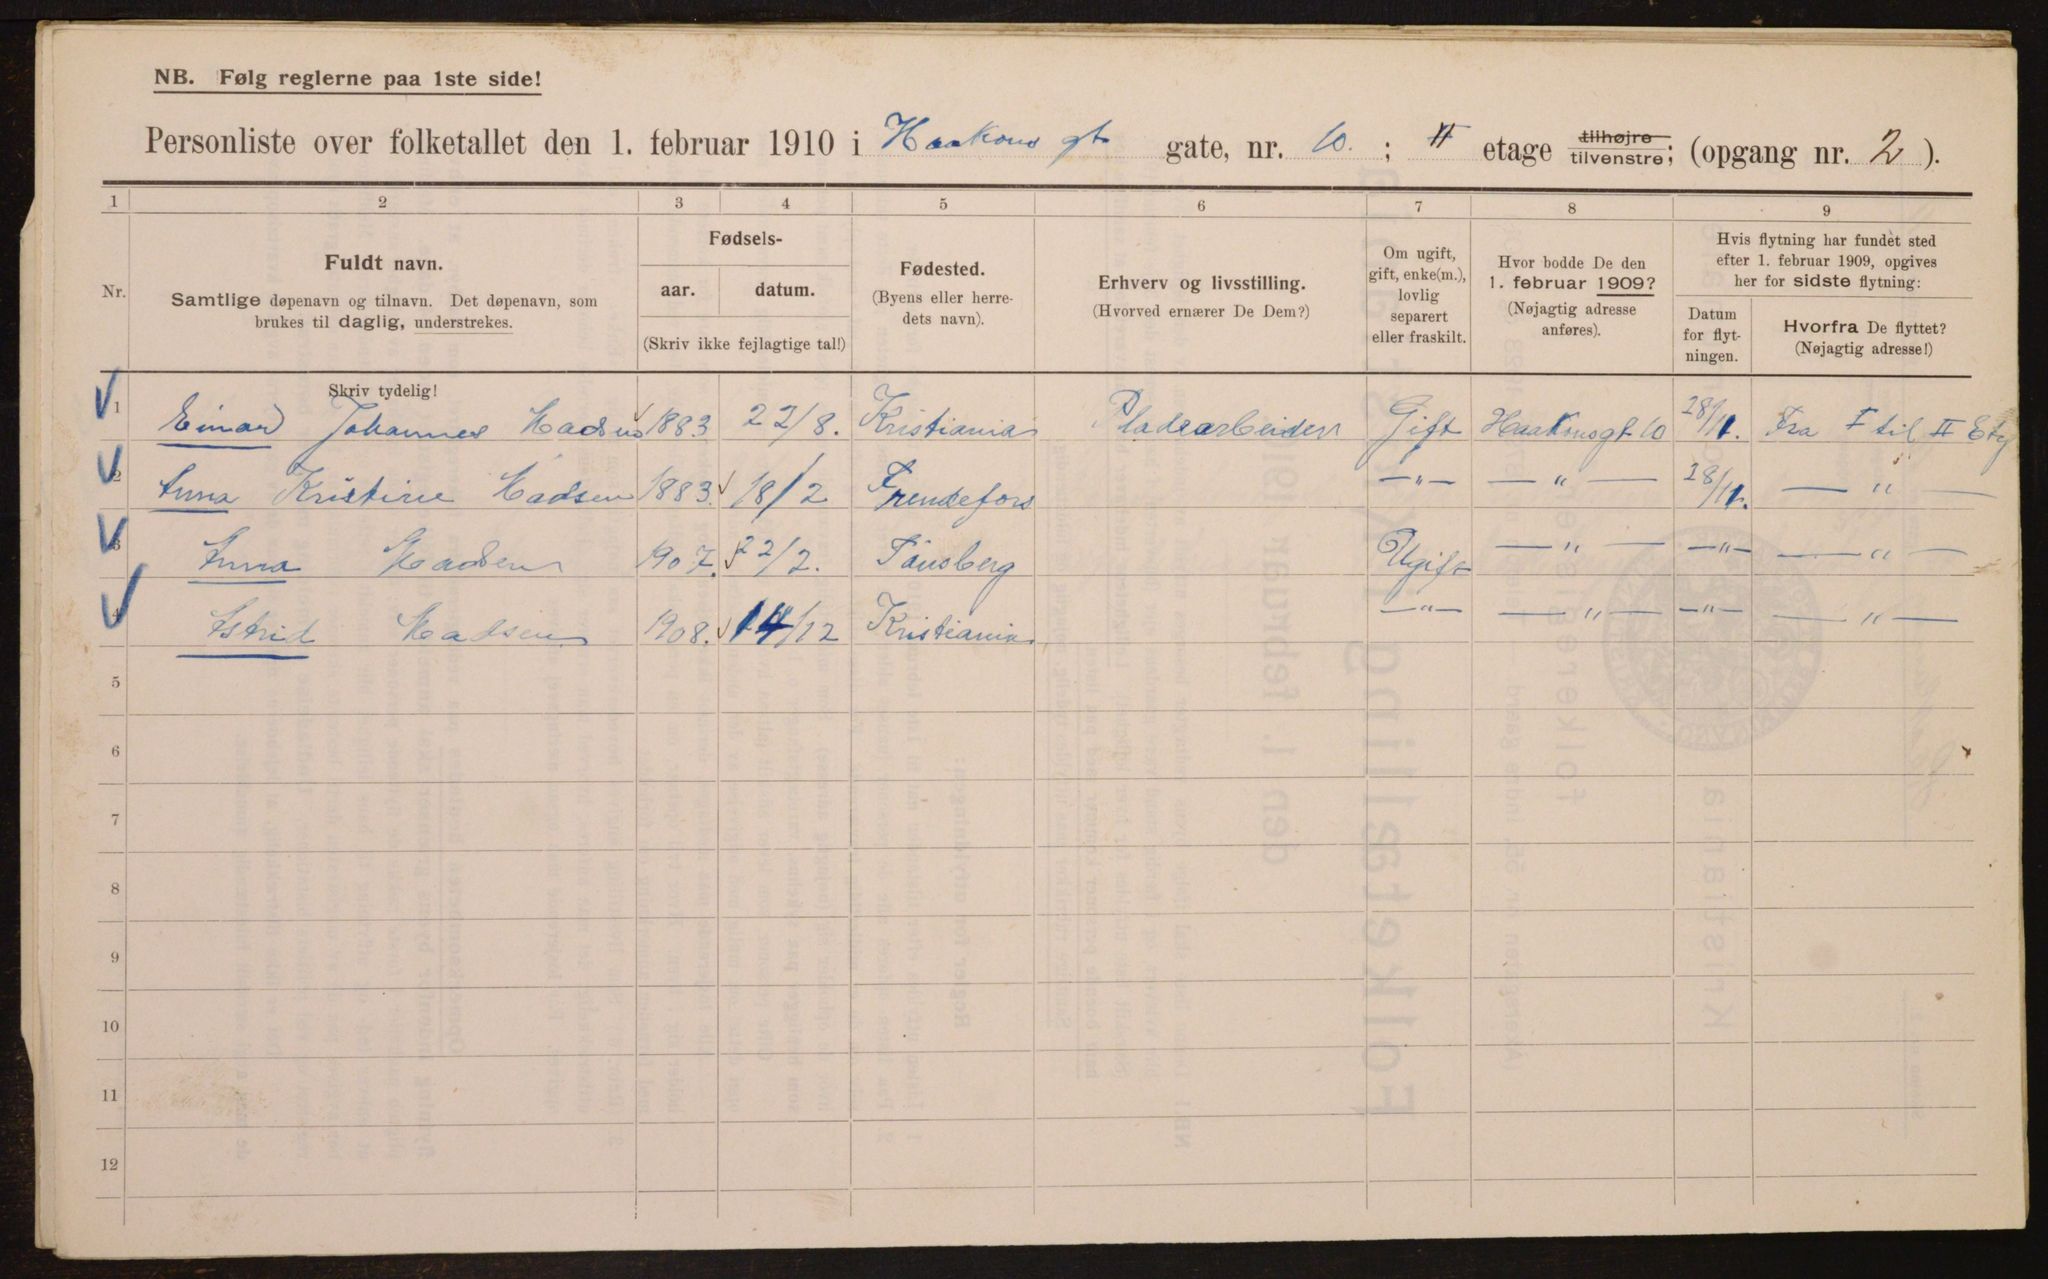 NB. Følg reglerne paa 1ste side!
Personliste over folketallet den 1. februar 1910 i Haakons gt gate, nr. 10. ; II etage tilhøjre tilvenstre; (opgang nr. 2 ).
1 2 3 4 5 6 7 8 9
Nr.
Fuldt navn.
Samtlige døpenavn og tilnavn. Det døpenavn, som
brukes til daglig, understrekes.
Skriv tydelig!
Fødsels-
aar. datum.
(Skriv ikke fejlagtige tal!)
Fødested.
(Byens eller herre-
dets navn).
Erhverv og livsstilling.
(Hvorved ernærer De Dem?)
Om ugift,
gift, enke(m.),
lovlig
separert
eller fraskilt.
Hvor bodde De den
1. februar 1909?
(Nøjagtig adresse
anføres).
Hvis flytning har fundet sted
efter 1. februar 1909, opgives
her for sidste flytning:
Datum
for flyt-
ningen.
Hvorfra De flyttet?
(Nøjagtig adresse!)
1 Einar Johannes Madsen 1883 22/8. Kristiania Pladearbeider Gift Haakonsgt 10 28/11. Fra I til II Etg
2 Anna Kristine Madsen 1883. 18/2 –"– – " – 28/11. – " –
3 Anna Madsen 1907. 22/2. Tønsberg Ugift – " – –"– – " –
4 Astrid Madsen 1908. 14/12 Kristiania –"– – " – –"– – " –
5
6
7
8
9
10
11
12